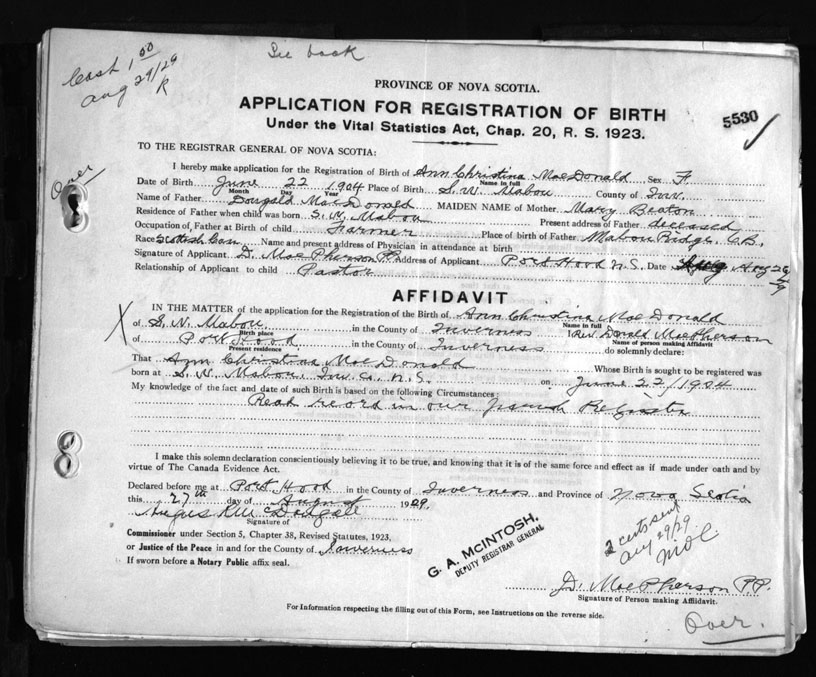 Cash 1.00
Aug 29/29
R
See back
PROVINCE OF NOVA SCOTIA.
APPLICATION FOR REGISTRATION OF BIRTH
Under the Vital Statistics Act, Chap. 20, R. S. 1923.
5530
TO THE REGISTRAR GENERAL OF NOVA SCOTIA:
Over
I hereby make application for the Registration of Birth of Ann Christina MacDonald Sex F.
Name in full
Date of Birth June 22 1904 Place of Birth S.W. Mabou County of Inv.
Month Day Year
Name of Father Dougald MacDonald MAIDEN NAME of Mother Mary Beaton
Residence of Father when child was born S.W. Mabou Present address of Father deceased
Occupation of Father at Birth of child Farmer Place of birth of Father Mabou Ridge, C.B.
Race Scottish Can. Name and present address of Physician in attendance at birth
Signature of Applicant D. MacPherson P.P. Address of Applicant Port Hood N.S. Date Aug 26/29
Relationship of Applicant to child Pastor
AFFIDAVIT
IN THE MATTER of the application for the Registration of the Birth of Ann Christina MacDonald
Name in full
of S.W. Mabou in the County of Inverness I Rev. Donald MacPherson
Birth place
Name of person making Affidavit
of Port Hood in the County of Inverness do solemnly declare:
Present residence
That Ann Christina MacDonald Whose Birth is sought to be registered was
born at S.W. Mabou, Inv. Co. N.S. on June 22/1904
My knowledge of the fact and date of such Birth is based on the following Circumstances:
Read record in our Parish Register
I make this solemn declaration conscientiously believing it to be true, and knowing that it is of the same force and effect as if made under oath and by
virtue of The Canada Evidence Act.
Declared before me at Port Hood in the County of Inverness and Province of Nova Scotia
this 27th day of August 1929.
Angus McDougall
Signature of
Commissioner under Section 5, Chapter 38, Revised Statutes, 1923,
or Justice of the Peace in and for the County of Inverness
If sworn before a Notary Public affix seal.
G. A. McINTOSH,
DEPUTY REGISTRAR GENERAL
2 certs sent
Aug 29/29
D. MacPherson P.P.
Signature of Person making Affidavit.
For Information respecting the filling out of this Form, see Instructions on the reverse side.
Over.